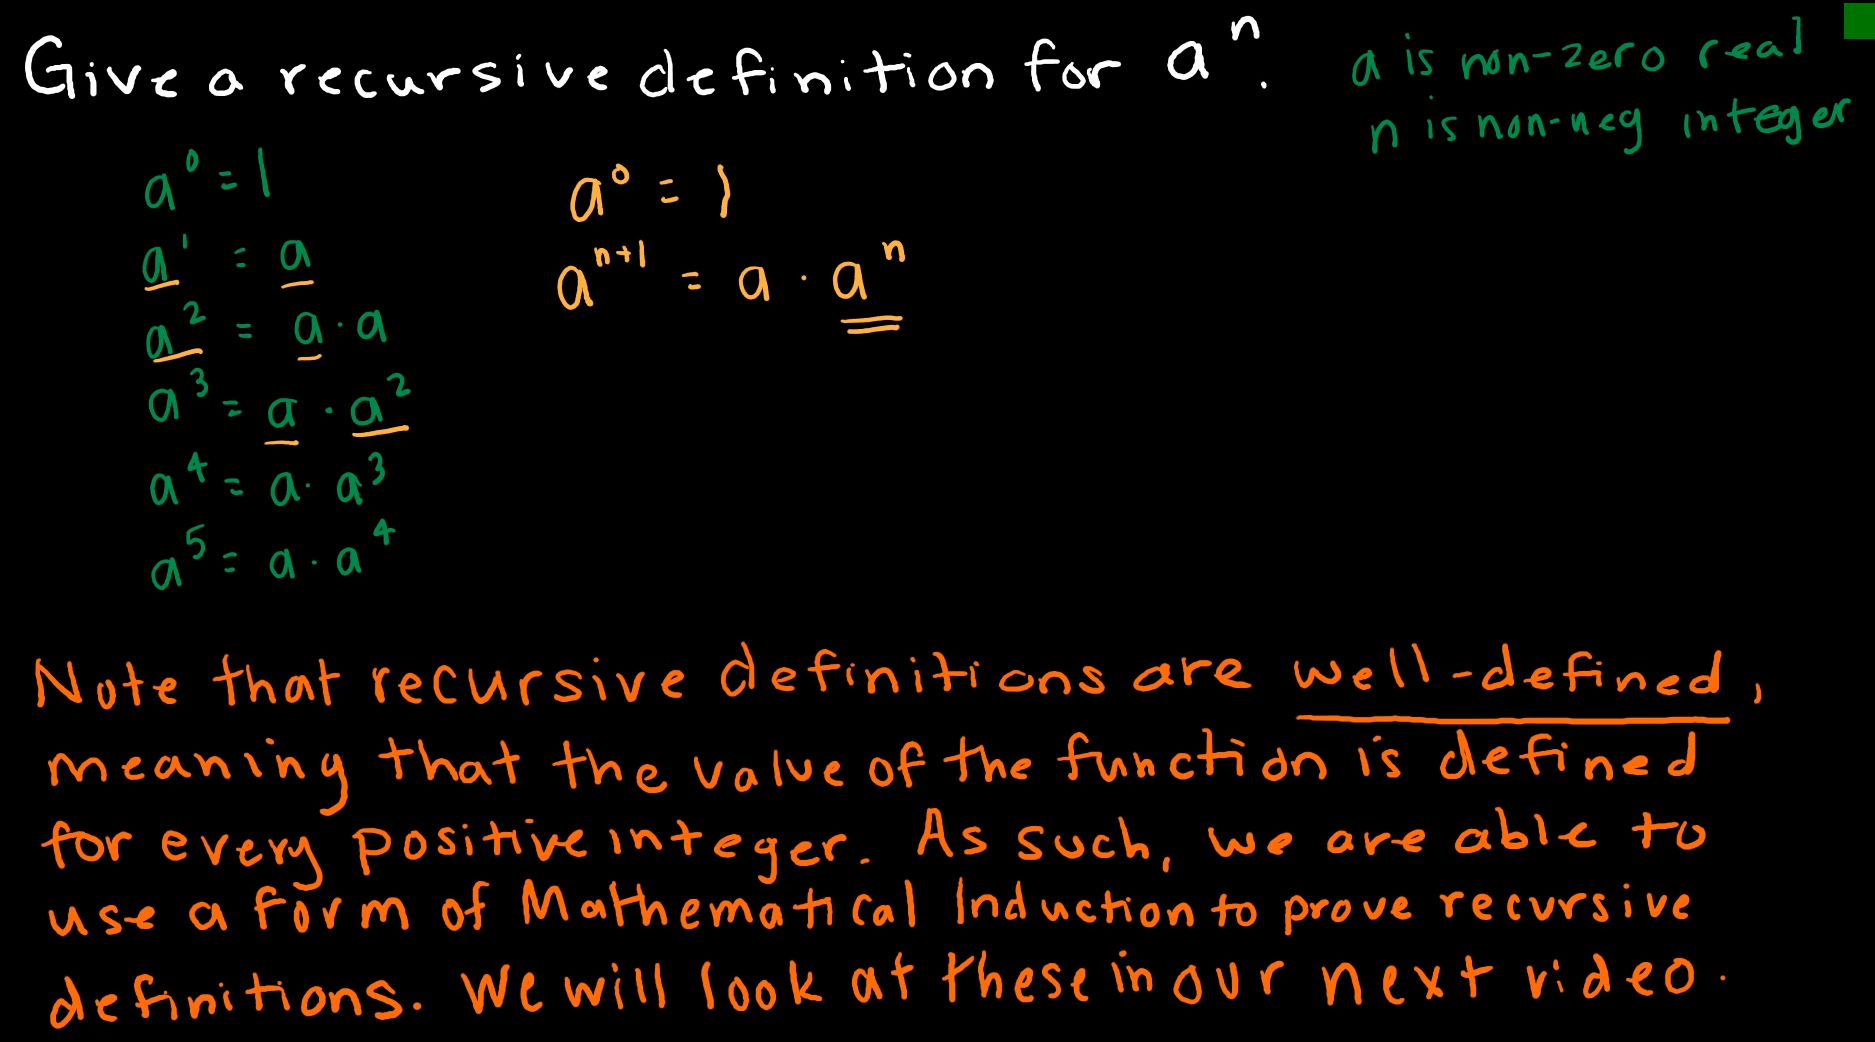 Give a recursive definition for aⁿ.
a is non-zero real
n is non-neg integer
a⁰ = 1
a¹ = a
a² = a · a
a³ = a · a²
a⁴ = a · a³
a⁵ = a · a⁴
a⁰ = 1
aⁿ⁺¹ = a · aⁿ
Note that recursive definitions are well-defined,
meaning that the value of the function is defined
for every positive integer. As such, we are able to
use a form of Mathematical Induction to prove recursive
definitions. We will look at these in our next video.